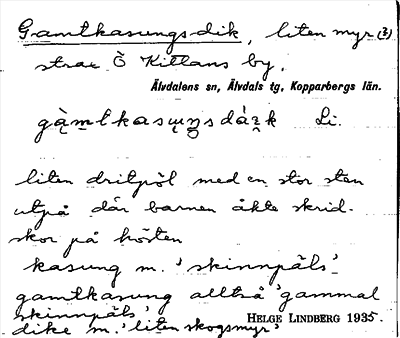 Gamtkasungsdik, liten myr (3)
strax Ö Kitlans by.
Älvdalens sn, Älvdals tg, Kopparbergs län.
Li.
liten dritpöl med en stor sten
utpå där barnen åkte skrid-
skor på hösten
kasung m. 'skinnpäls'
gamtkasung alltså 'gammal
skinnpäls'
dike m. 'liten skogsmyr'
HELGE LINDBERG 1935.